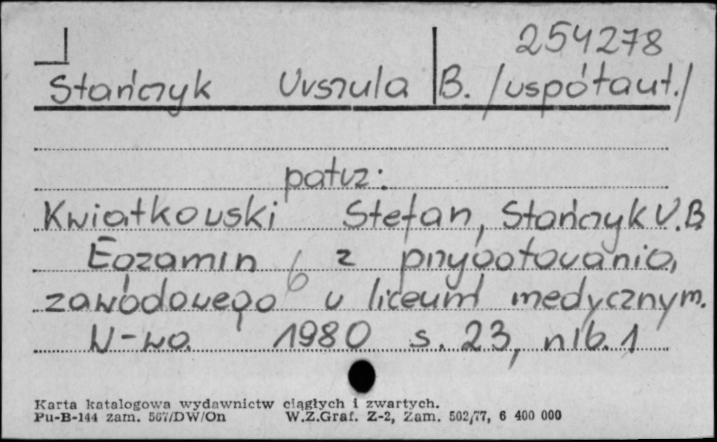 254278
Stańczyk Urszula B. /współaut./
patrz:
Kwiatkowski Stefan, Stańczyk U.B
Egzamin z przygotowania
zawodowego w liceum medycznym.
W-wa 1980 s. 23, nlb. 1
Karta katalogowa wydawnictw ciągłych i zwartych.
Pu-B-144 zam. 567/DW/On W.Z.Graf. Z-2, Zam. 502/77, 6 400 000